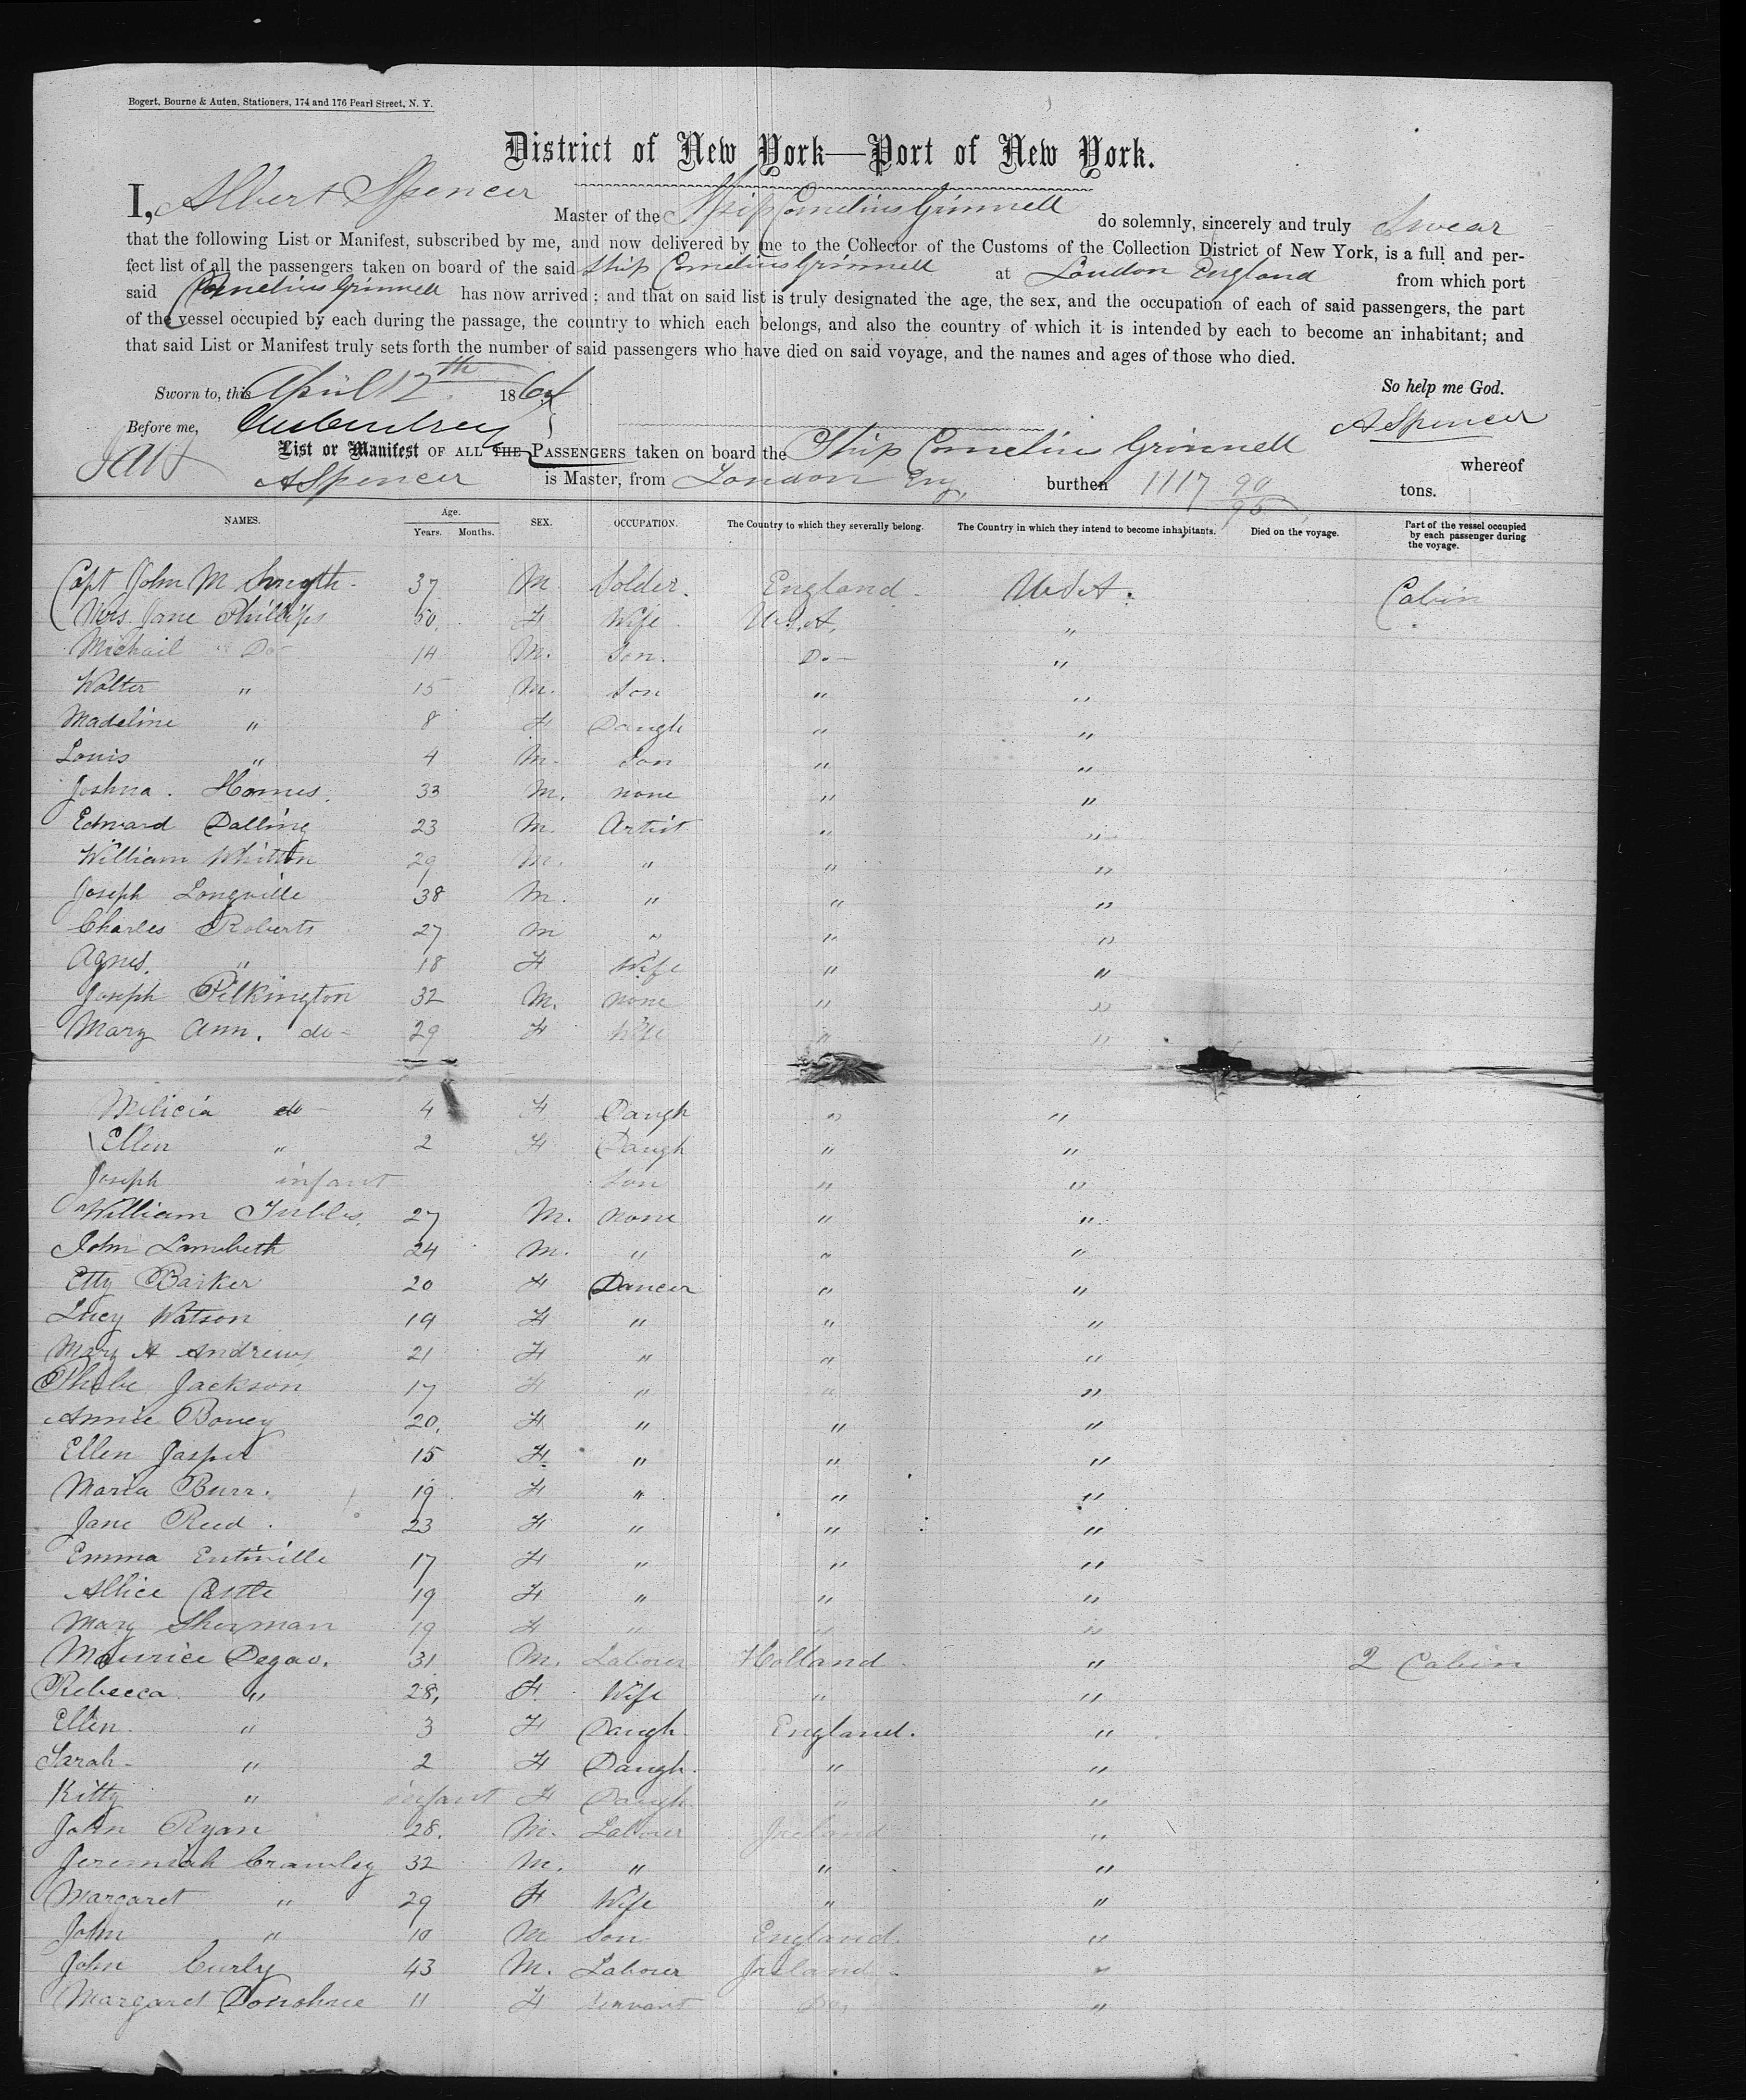 Bogert, Bourne & Auten, Stationers, 174 and 176 Pearl Street, N. Y.
District of New York—Port of New York.
I, Albert Spencer Master of the Ship Cornelius Grinnell do solemnly, sincerely and truly Swear
that the following List or Manifest, subscribed by me, and now delivered by me to the Collector of the Customs of the Collection District of New York, is a full and per-
fect list of all the passengers taken on board of the said Ship Cornelius Grinnell at London England from which port
said Cornelius Grinnell has now arrived; and that on said list is truly designated the age, the sex, and the occupation of each of said passengers, the part
of the vessel occupied by each during the passage, the country to which each belongs, and also the country of which it is intended by each to become an inhabitant; and
that said List or Manifest truly sets forth the number of said passengers who have died on said voyage, and the names and ages of those who died.
So help me God.
Sworn to, this April 12th 1864
A Spencer
Before me,
List or Manifest OF ALL THE PASSENGERS taken on board the Ship Cornelius Grinnell whereof
A Spencer is Master, from London Eng, burthen 1117 90/95 tons.
NAMES. Age. Years. Months. SEX. OCCUPATION. The Country to which they severally belong. The Country in which they intend to become inhabitants. Died on the voyage. Part of the vessel occupied by each passenger during the voyage.
Capt John M Smyth 37 M. Solder. England U.S.A. Cabin
Mrs Jane Phillips 50 F Wife U.S.A. "
Michail " Do 14 M. Son. Do "
Walter " 15 M. Son " "
Madeline " 8 F Daugh " "
Louis " 4 M. Son " "
Joshua. Homes. 33 M. none " "
Edward Dalling 23 M. Artist " "
William Whitton 29 M. " " "
Joseph Longville 38 M. " " "
Charles Roberts 27 M " " "
Agnes. " 18 F Wife " "
Joseph Pilkington 32 M. none " "
Mary Ann. do 29 F Wife " "
Milicia do 4 F Daugh " "
Ellen " 2 F Daugh " "
Joseph infant Son " "
William Tubbs. 27 M. none " "
John Lambeth 24 M. " " "
Etty Barker 20 F Dancer " "
Lucy Watson 19 F " " "
Mary A Andrews 21 F " " "
Phebe Jackson 17 F " " "
Annie Bovey 20. F " " "
Ellen Jasper 15 F. " " "
Maria Burr. 19 F " " "
Jane Reed. 23 F " " "
Emma Entiville 17 F " " "
Allice Castle 19 F " " "
Mary Sherman 19 F " " "
Maurice Degao. 31 M. Labourer Holland " 2 Cabin
Rebecca " 28, F. Wife " "
Ellen. " 3 F Daugh. England. "
Sarah " 2 F Daugh. " "
Kitty " infant F Daugh. " "
John Ryan 28. M. Labourer Ireland "
Jeremiah Crawley 32 M. " " "
Margaret " 29 F Wife " "
John " 10 M Son England. "
John Curly 43 M. Labourer Ireland "
Margaret Donohue 11 F Servant Do "